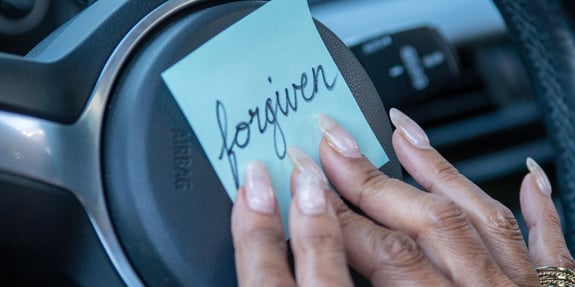 forgiven
AIRBAG